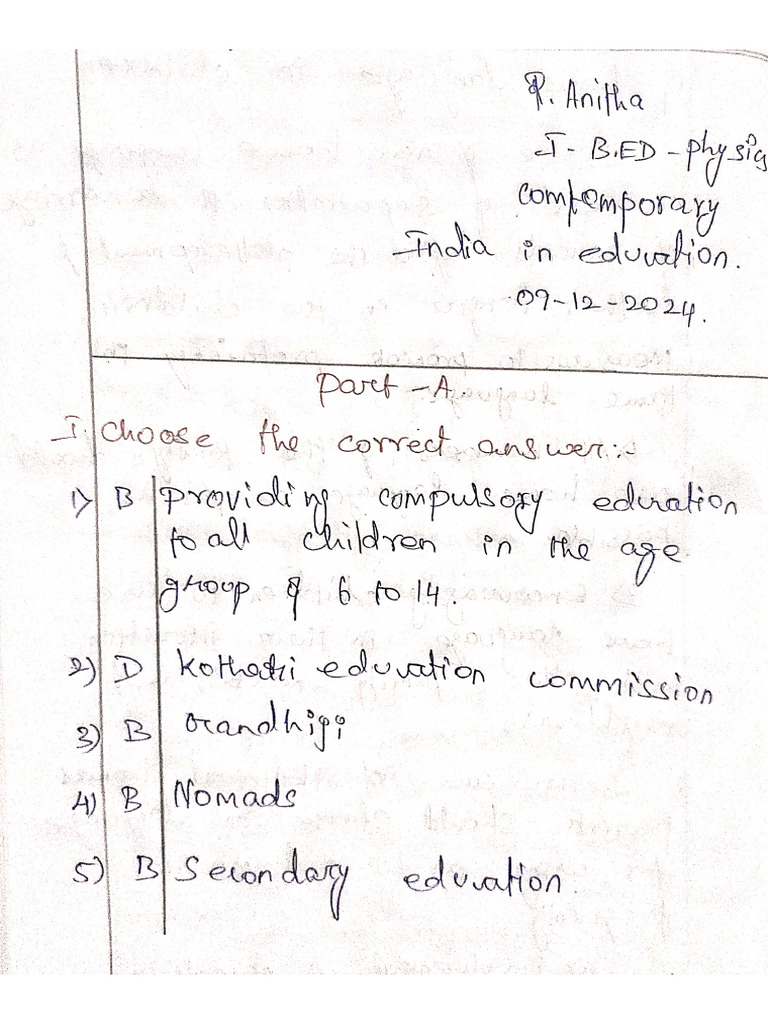 P. Anitha
I - B.ED - physics
Comtemporary
India in education.
09-12-2024.
Part - A
I. Choose the correct answer:-
1) B Providing compulsory education
to all children in the age
group of 6 to 14.
2) D Kothari education commission
3) B Gandhiji
4) B Nomads
5) B Secondary education